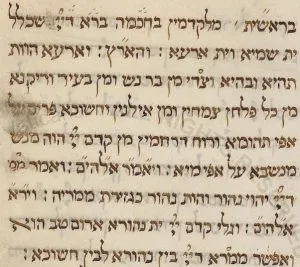 בראשית מלקדמין בחכמה ברא דייי שכלל
ית שמיא וית ארעא : והארץ : וארעא הוות
תהיא ובהיא וצדי מן בר נש ומן בעיר וריקנא
מן כל פלחן צמחין ומן אילנין וחשוכא פריס על
אפי תהומא ורוח דרחמין מן קדם ייי הוה מנש
מנשבא על אפי מיא : ויאמר אלהים : ואמר ממ
דייי יהוי נהור והות נהור כגזירת ממריה : וירא
אלהים : וגלי קדם ייי ית נהורא ארום טב הוא
ואפרש ממרא דייי בין נהורא לבין חשוכא :